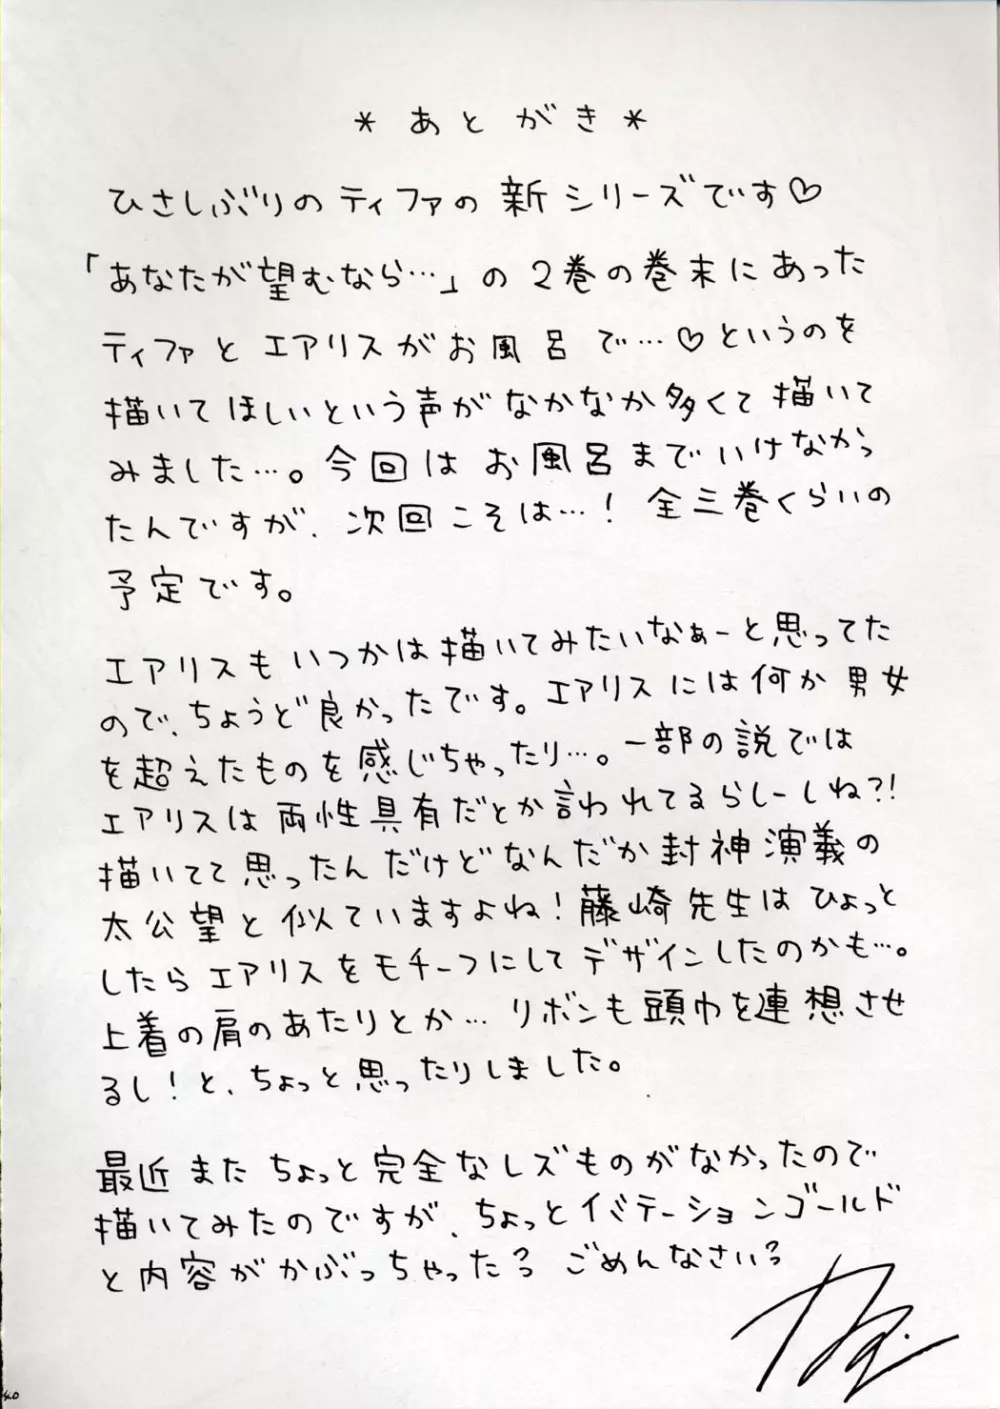 * あとがき *
ひさしぶりのティファの新シリーズです♡
「あなたが望むなら…」の2巻の巻末にあった
ティファとエアリスがお風呂で…♡というのを
描いてほしいという声がなかなか多くて描いて
みました…。今回はお風呂までいけなかっ
たんですが、次回こそは…！全三巻くらいの
予定です。
エアリスもいつかは描いてみたいなぁーと思ってた
ので、ちょうど良かったです。エアリスには何か男女
を超えたものを感じちゃったり…。一部の説では
エアリスは両性具有だとか言われてるらしーしね?!
描いてて思ったんだけどなんだか封神演義の
太公望と似ていますよね！藤崎先生はひょっと
したらエアリスをモチーフにしてデザインしたのかも…。
上着の肩のあたりとか…リボンも頭巾を連想させ
るし！と、ちょっと思ったりしました。
最近またちょっと完全なレズものがなかったので
描いてみたのですが、ちょっとイミテーションゴールド
と内容がかぶっちゃった？ごめんなさい？
40